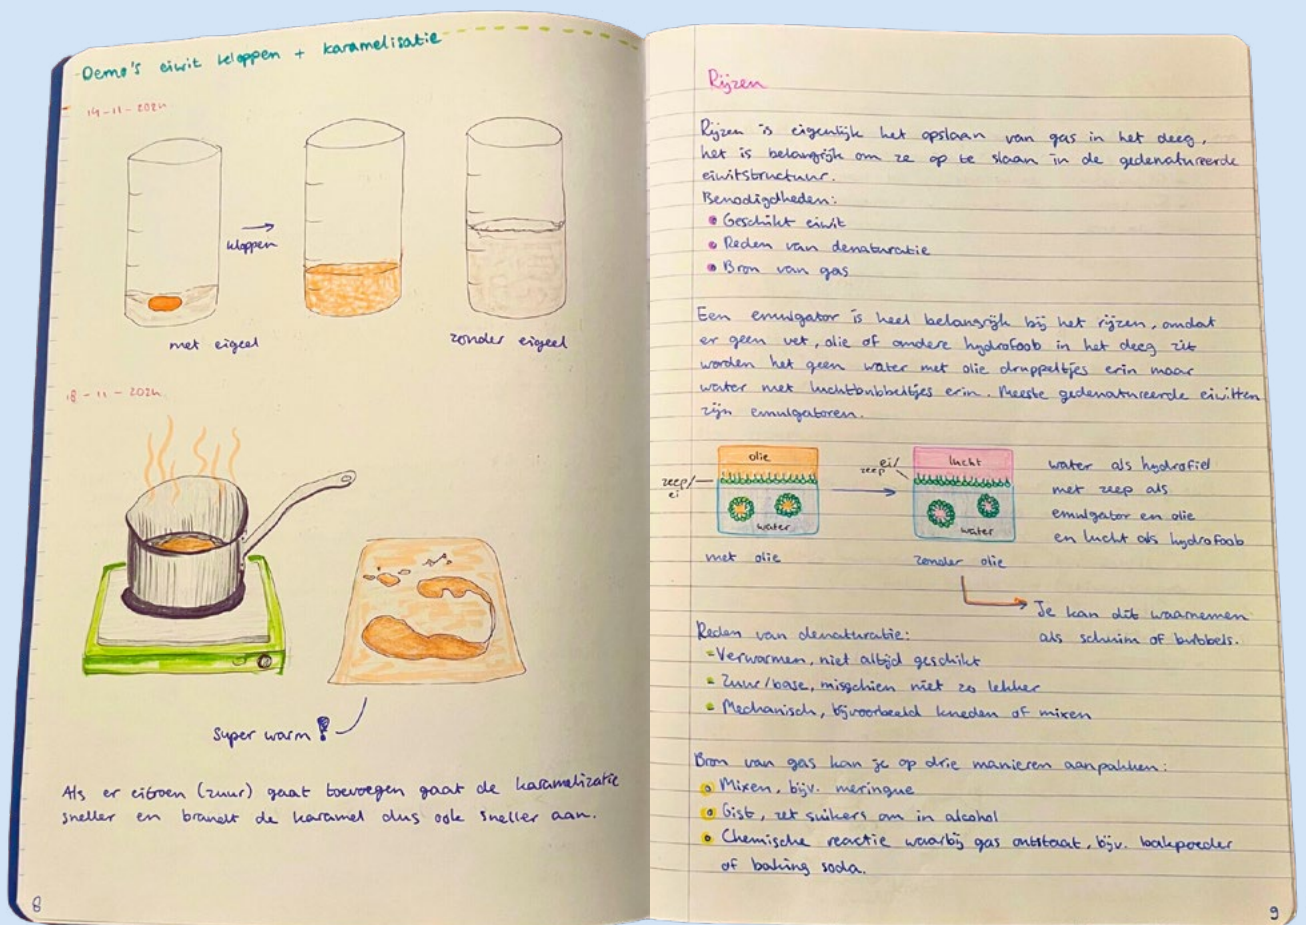 Demo's eiwit kloppen + karamelisatie
14-11-2024
kloppen
met eigeel
zonder eigeel
18-11-2024
Super warm!
Als er citroen (zuur) gaat toevoegen gaat de karamelizatie
sneller en brandt de karamel dus ook sneller aan.
8
Rijzen
Rijzen is eigenlijk het opslaan van gas in het deeg,
het is belangrijk om ze op te slaan in de gedenatureerde
eiwitstructuur.
Benodigdheden:
Geschikt eiwit
Reden van denaturatie
Bron van gas
Een emulgator is heel belangrijk bij het rijzen, omdat
er geen vet, olie of andere hydrofoob in het deeg zit
worden het geen water met olie druppeltjes erin maar
water met luchtbubbeltjes erin. Meeste gedenatureerde eiwitten
zijn emulgatoren.
olie
zeep/
ei
water
met olie
lucht
ei/
zeep
water
zonder olie
water als hydrofiel
met zeep als
emulgator en olie
en lucht als hydrofoob
Je kan dit waarnemen
als schuim of bubbels.
Reden van denaturatie:
- Verwarmen, niet altijd geschikt
- Zuur/base, misschien niet zo lekker
- Mechanisch, bijvoorbeeld kneden of mixen
Bron van gas kan je op drie manieren aanpakken:
Mixen, bijv. meringue
Gist, zet suikers om in alcohol
Chemische reactie waarbij gas ontstaat, bijv. bakpoeder
of baking soda.
9